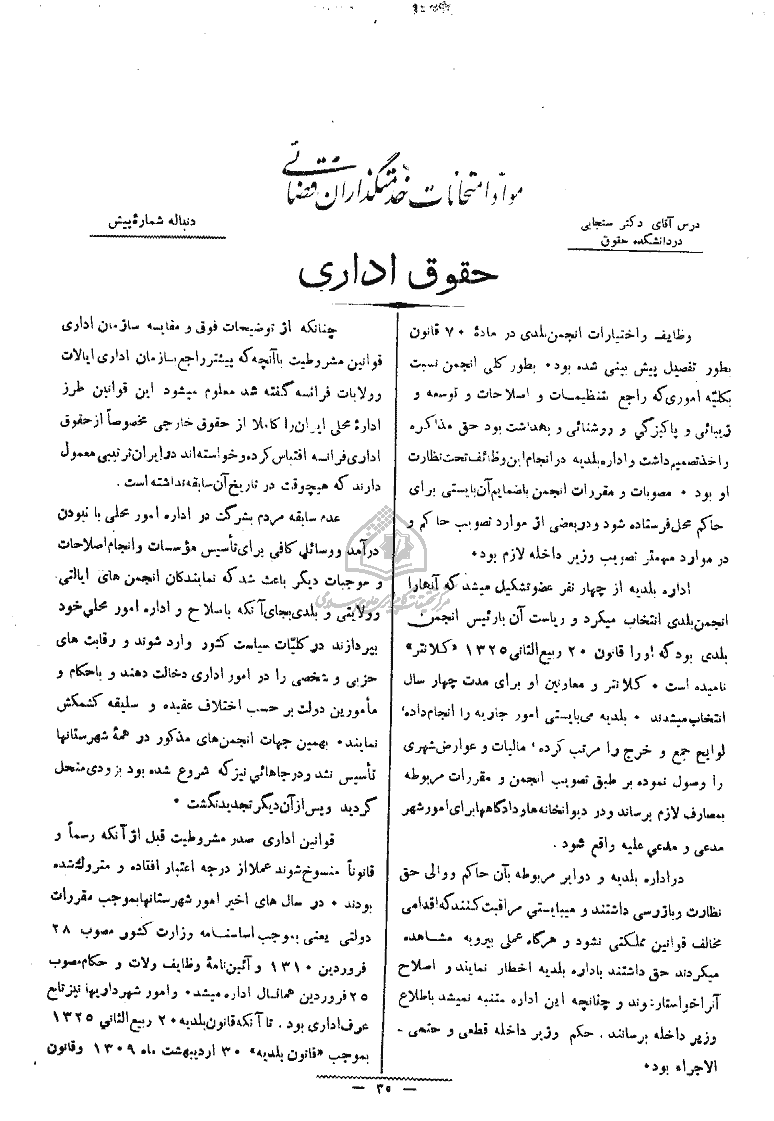 مواد امتحانات خدمتگذاران قضائی
درس آقای دکتر سنجابی
در دانشکده حقوق
دنباله شمارهٔ پیش
حقوق اداری
وظایف و اختیارات انجمن بلدی در مادهٔ ۷۰ قانون
بطور تفصیل پیش بینی شده بود. بطور کلی انجمن نسبت
بکلیّه اموری که راجع بتنظیمات و اصلاحات و توسعه و
زیبائی و پاکیزگی و روشنائی و بهداشت بود حق مذاکره
و اخذ تصمیم داشت و اداره بلدیه در انجام این وظائف تحت نظارت
او بود. مصوبات و مقررات انجمن با ضمایم آن بایستی برای
حاکم محل فرستاده شود و در بعضی از موارد تصویب حاکم و
در موارد مهمتر تصویب وزیر داخله لازم بود.
اداره بلدیه از چهار نفر عضو تشکیل میشد که آنها را
انجمن بلدی انتخاب میکرد و ریاست آن با رئیس انجمن
بلدی بود که او را قانون ۲۰ ربیع الثانی ۱۳۲۵ «کلانتر»
نامیده است. کلانتر و معاونین او برای مدت چهار سال
انتخاب میشدند. بلدیه می بایستی امور جاریه را انجام داده،
لوایح جمع و خرج را مرتب کرده، مالیات و عوارض شهری
را وصول نموده بر طبق تصویب انجمن و مقررات مربوطه
بمصارف لازم برساند و در دیوانخانه ها و دادگاهها برای امور شهر
مدعی و مدعی علیه واقع شود.
در اداره بلدیه و دوایر مربوطه بآن حاکم و والی حق
نظارت و بازرسی داشتند و میبایستی مراقبت کنند که اقدامی
مخالف قوانین مملکتی نشود و هرگاه عملی بیرویه مشاهده
میکردند حق داشتند باداره بلدیه اخطار نمایند و اصلاح
آنرا خواستار شوند و چنانچه این اداره متنبه نمیشد باطلاع
وزیر داخله برسانند. حکم وزیر داخله قطعی و حتمی -
الاجراء بود.
چنانکه از توضیحات فوق و مقایسه سازمان اداری
قوانین مشروطیت با آنچه که پیشتر راجع بسازمان اداری ایالات
و ولایات فرانسه گفته شد معلوم میشود این قوانین طرز
ادارهٔ محلی ایران را کاملا از حقوق خارجی مخصوصاً از حقوق
اداری فرانسه اقتباس کرده و خواسته اند در ایران ترتیبی معمول
دارند که هیچوقت در تاریخ آن سابقه نداشته است.
عدم سابقه مردم بشرکت در اداره امور محلی با نبودن
درآمد و وسائل کافی برای تأسیس مؤسسات و انجام اصلاحات
و موجبات دیگر باعث شد که نمایندکان انجمن های ایالتی
و ولایتی و بلدی بجای آنکه باصلاح و اداره امور محلی خود
بپردازند در کلیّات سیاست کشور وارد شوند و رقابت های
حزبی و شخصی را در امور اداری دخالت دهند و باحکام و
مأمورین دولت بر حسب اختلاف عقیده و سلیقه کشمکش
نمایند. بهمین جهات انجمن های مذکور در همهٔ شهرستانها
تأسیس نشد و در جاهائی نیز که شروع شده بود بزودی منحل
گردید و پس از آن دیگر تجدید نگشت.
قوانین اداری صدر مشروطیت قبل از آنکه رسماً و
قانوناً منسوخ شوند عملا از درجه اعتبار افتاده و متروک شده
بودند. در سال های اخیر امور شهرستانها بموجب مقررات
دولتی یعنی بموجب اساسنامه وزارت کشور مصوب ۲۸
فروردین ۱۳۱۰ و آئین نامهٔ وظایف ولات و حکام مصوب
۲۵ فروردین همانسال اداره میشد. و امور شهرداریها نیز تابع
عرف اداری بود. تا آنکه قانون بلدیه ۲۰ ربیع الثانی ۱۳۲۵
بموجب «قانون بلدیه» ۳۰ اردیبهشت ماه ۱۳۰۹ و قانون
— ۳۵ —